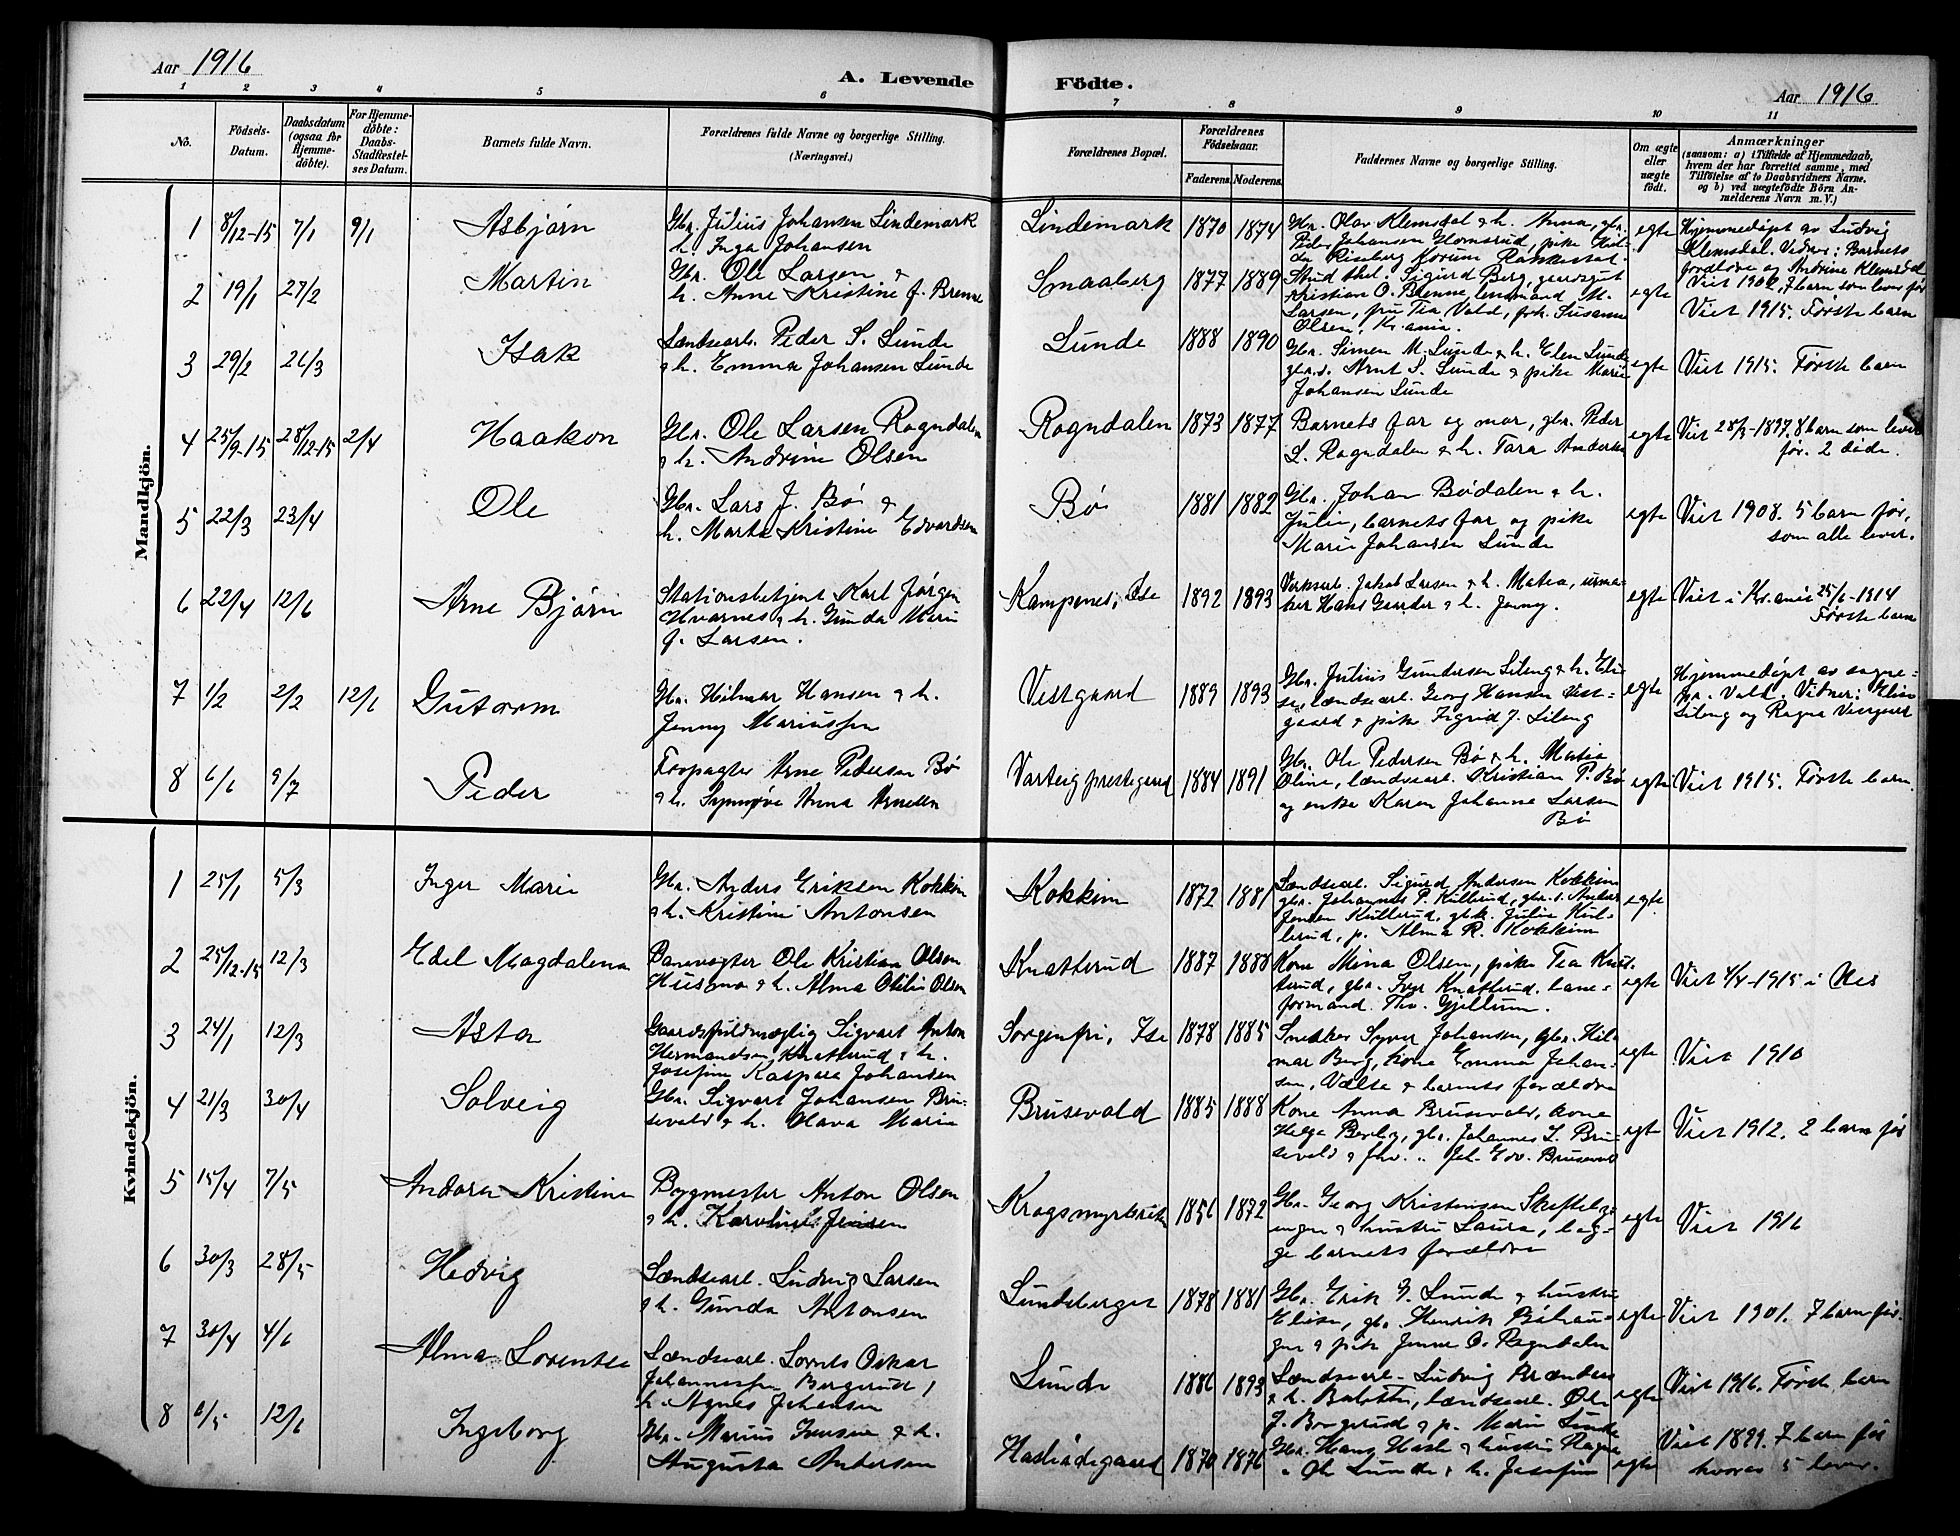 Aar 1916
A. Levende Födte.
Aar 1916
1 2 3 4 5 6 7 8 9 10 11
No.
Födsels-
Datum.
Daabsdatum
(ogsaa for
Hjemme-
döbte).
For Hjemme-
döbte:
Daabs-
Stadfæstel-
ses Datum.
Barnets fulde Navn.
Forældrenes fulde Navne og borgerlige Stilling.
(Næringsvei.)
Forældrenes Bopæl.
Forældrenes
Födselsaar.
Faderens. Moderens.
Faddernes Navne og borgerlige Stilling.
Om ægte
eller
uægte
födt.
Anmærkninger
(saasom: a) i Tilfælde af Hjemmedaab,
hvem der har forrettet samme, med
Tilföielse af to Daabsvidners Navne.
og b) ved uægtefödte Börn An-
melderens Navn m. V.)
Mandkjön.
1 8/12-15 7/1 9/1 Asbjørn
Gbr. Julius Johansen Lindemark
h. Inga Johansen
Lindemark 1870 1874
Gbr. Olav Klemsdal & h. Anna, gbr.
Peder Johansen Glomsrud, pike
egte
Hjemmedøpt av Ludvig
Klemsdal. Vidner: Barnets
forældre og Andrine Klemsdal
Viet 1902, 7 barn som lever før
2 19/1 27/2 Martin
Gbr. Ole Larsen &
h. Anne Kristine f. Brenne
Smaaberg 1877 1889
Stud. theol. Sigurd Berg,
Kristian O. Brenne, lensmand M.
Larsen, fru Tea Vald, frk. Susanne
Olsen, Kr.ania.
egte
Viet 1915. Første barn
3 29/2 26/3 Isak
Landsearb. Peder S. Lunde
& h. Emma Johansen Lunde
Lunde 1888 1890
Gbr. Simen M. Lunde & h. Elen Lunde,
gbr.s. Arnt S. Lunde & pike Marie
Johansen Lunde
egte
Viet 1915. Første barn
4 25/9-15 28/12-15 2/4 Haakon
Gbr. Ole Larsen Rogndalen
& h. Andrine Olsen
Rogndalen 1873 1877
Barnets far og mor, gbr. Peder
L. Rogndalen & h. Tara Andersen
egte
Viet 28/3-1897. 8 barn som lever
før. 2 døde.
5 22/3 23/4 Ole
Gbr. Lars J. Bø &
h. Marta Kristine Edvardsen
Bø 1881 1882
Gbr. Johan Bødalen & h.
Julie, barnets far og pike
Marie Johansen Lunde
egte
Viet 1908. 5 barn før,
som alle lever.
6 22/4 12/6 Arne Bjørn
Stationsbetjent Karl Jørgen
Hvarnes & h. Gunda Marie
f. Larsen.
Kampenes, Ise 1892 1893
Verksarb. Jakob Larsen & h. Matea, urma-
ker Hans Garder & h. Jenny.
egte
Viet i Kr.ania 25/6-1914
Første barn
7 1/2 2/2 12/6 Gutorm
Gbr. Hilmar Hansen & h.
Jenny Mariussen
Vestgaard 1889 1893
Gbr. Julius Gundersen Lileng & h. Eli-
se, landsearb. Georg Hansen Vest-
gaard & pike Sigrid J. Lileng
egte
Hjemmedøpt av sogne-
pr. Vald. Vidner: Elise
Lileng og Ragna Vestgaard
8 6/6 9/7 Peder
Forpagter Arne Pedersen Bø
& h. Synnøve Anna
Varteig prestegaard 1884 1891
Gbr. Ole Pedersen Bø & h. Matea
Oline, landsearb. Kristian P. Bø
og enke Karen Johanne Larsen
Bø
egte
Viet 1915. Første barn.
Kvindekjön.
1 25/1 5/3 Inger Marie
Gbr. Anders Eriksen Kokkim
& h. Kristine Antonsen
Kokkim 1872 1881
Landsearb. Sigurd Andersen Kokkim
gbr. Johannes P. Kullerud, gbr.s. Anders
Jensen Kullerud, gbk. Julie Kul-
lerud, p. Alma R. Kokkim
egte
2 25/12-15 12/3 Edel Magdalena
Banevogter Ole Kristian Olsen
Husmo & h. Alma Otilie Olsen
Knatterud 1887 1888
Kone Mina Olsen, pike Tea Knat-
terud, gbr. Iver Knatterud, bane-
formand Thv. Gjellum.
egte
Viet 4/4-1915 i Nes
3 24/1 12/3 Asta
Gaardsfuldmægtig Sigvart Anton
Hermandsen Knatterud & h.
Josefine Kaspara Johansen
Sorgenfri, Ise 1878 1885
Snedker Syver Johansen, gbr. Hil-
mar Berg, kone Emma Johan-
sen, Vatste & barnets forældre
egte
Viet 1910
4 21/3 30/4 Solveig
Gbr. Sigvart Johansen Bru-
sevold & h. Olava Marie
Brusevold 1885 1888
Kone Anna Brusevold, kone
Helga Berby, gbr. Johannes L. Bru-
sevold & fhv. " Joh. Edv. Brusevold
egte
Viet 1912. 2 barn før
5 15/4 7/5 Andora Kristine
Bygmester Anton Olsen
& h. Karoline Jensen
1856 1872
Gbr. Georg Kristensen
& hustru Laura, beg-
ge barnets forældre
egte
Viet 1916
6 30/3 28/5 Hedvig
Landsearb. Ludvig Larsen
& h. Gunda Antonsen
Lundeberget 1878 1881
Gbr. Erik G. Lunde & hustru
Elise, gbr. Henrik Bøhau-
gen & pike Jenne O. Rogndalen
egte
Viet 1901. 7 barn før.
7 30/4 4/6 Alma Lorentse
Landsearb. Lornts Oskar
Johannessen Bergerud,
h. Agnes Johansen
Lunde 1886 1893
Landsearb. Ludvig Brænden
& h. landsearb. Ole
J. Borgerud & p. Marie Lunde
egte
Viet 1916. Første barn
8 6/5 12/6 Ingeborg
Gbr. Marius Jensen & h.
Augusta Andersen
Hasleødegaard 1870 1876
Gbr. Hans Hasle & hustru Ragna
" Ole Lunde & h. Josefine
egte
Viet 1899. 7 barn før
hvorav 5 lever.